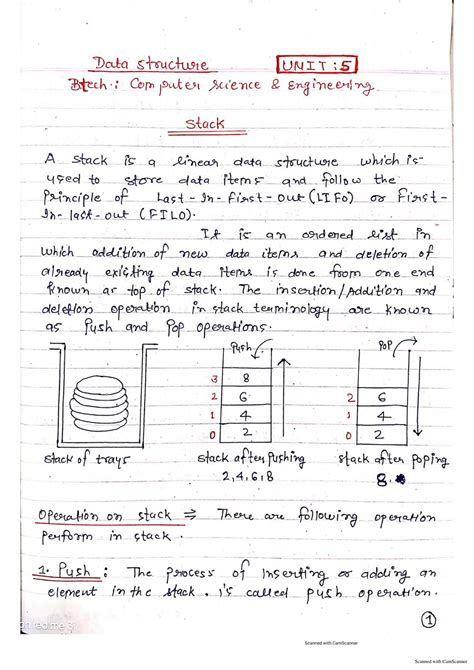 Data structure UNIT:5
Btech.: Computer science & Engineering
Stack
A stack is a linear data structure which is
used to store data items and follow the
principle of Last-In-First-out (LIFO) or First-
In-last-out (FILO).
It is an ordered list in
which addition of new data items and deletion of
already existing data items is done from one end
known as top of stack. The insertion/Addition and
deletion operation in stack terminology are known
as Push and Pop operations.
Push POP
3 8
2 6 2 6
1 4 1 4
0 2 0 2
stack of trays stack after pushing stack after poping
2,4,6,8 8.
Operation on stack ⇒ There are following operation
perform in stack.
1. Push : The process of Inserting or adding an
element in the stack, is called push operation.
1
Scanned with CamScanner
Scanned with CamScanner